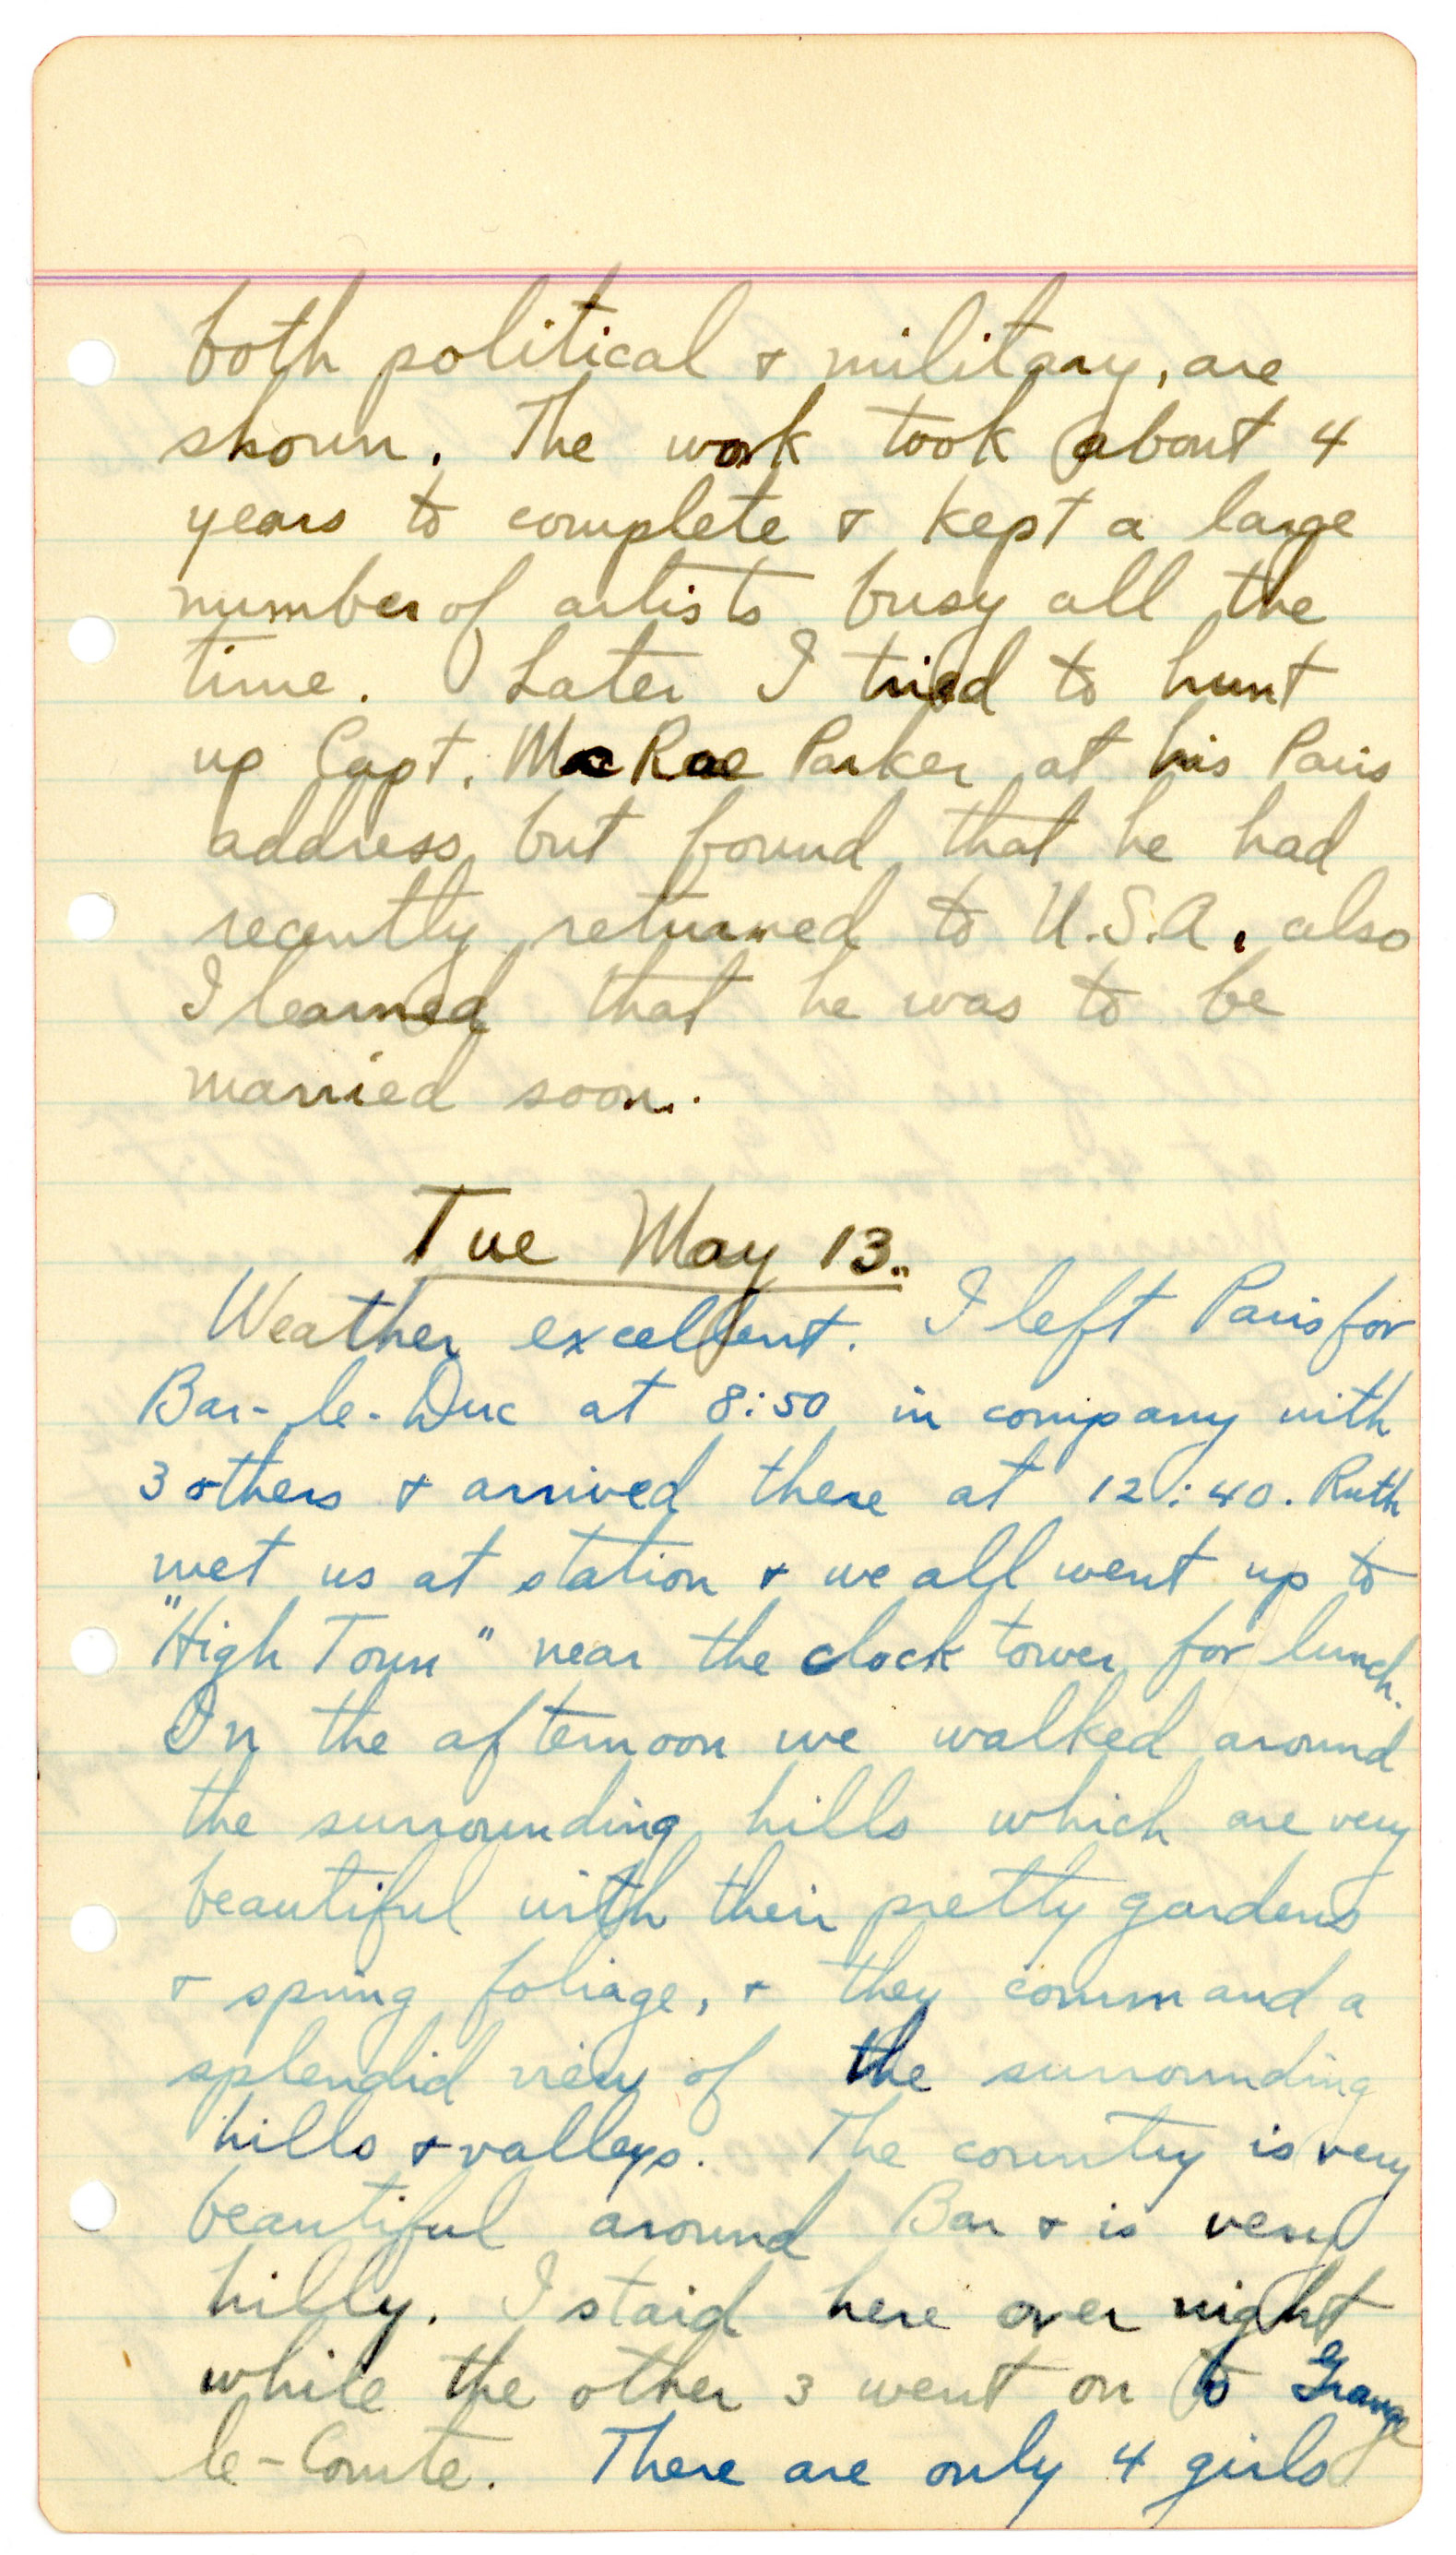 both political & military, are
shown. The work took about 4
years to complete & kept a large
number of artists busy all the
time. Later I tried to hunt
up Capt. MacRae Parker at his Paris
address but found that he had
recently returned to U.S.A. also
I learned that he was to be
married soon.
Tue May 13.
Weather excellent. I left Paris for
Bar-le-Duc at 8:50 in company with
3 others & arrived there at 12:40. Ruth
met us at station & we all went up to
"High Town" near the clock tower for lunch.
In the afternoon we walked around
the surrounding hills which are very
beautiful with their pretty gardens
& spring foliage, & they command a
splendid view of the surrounding
hills & valleys. The country is very
beautiful around Bar & is very
hilly. I staid here over night
while the other 3 went on to Grange
le-Comte. There are only 4 girls